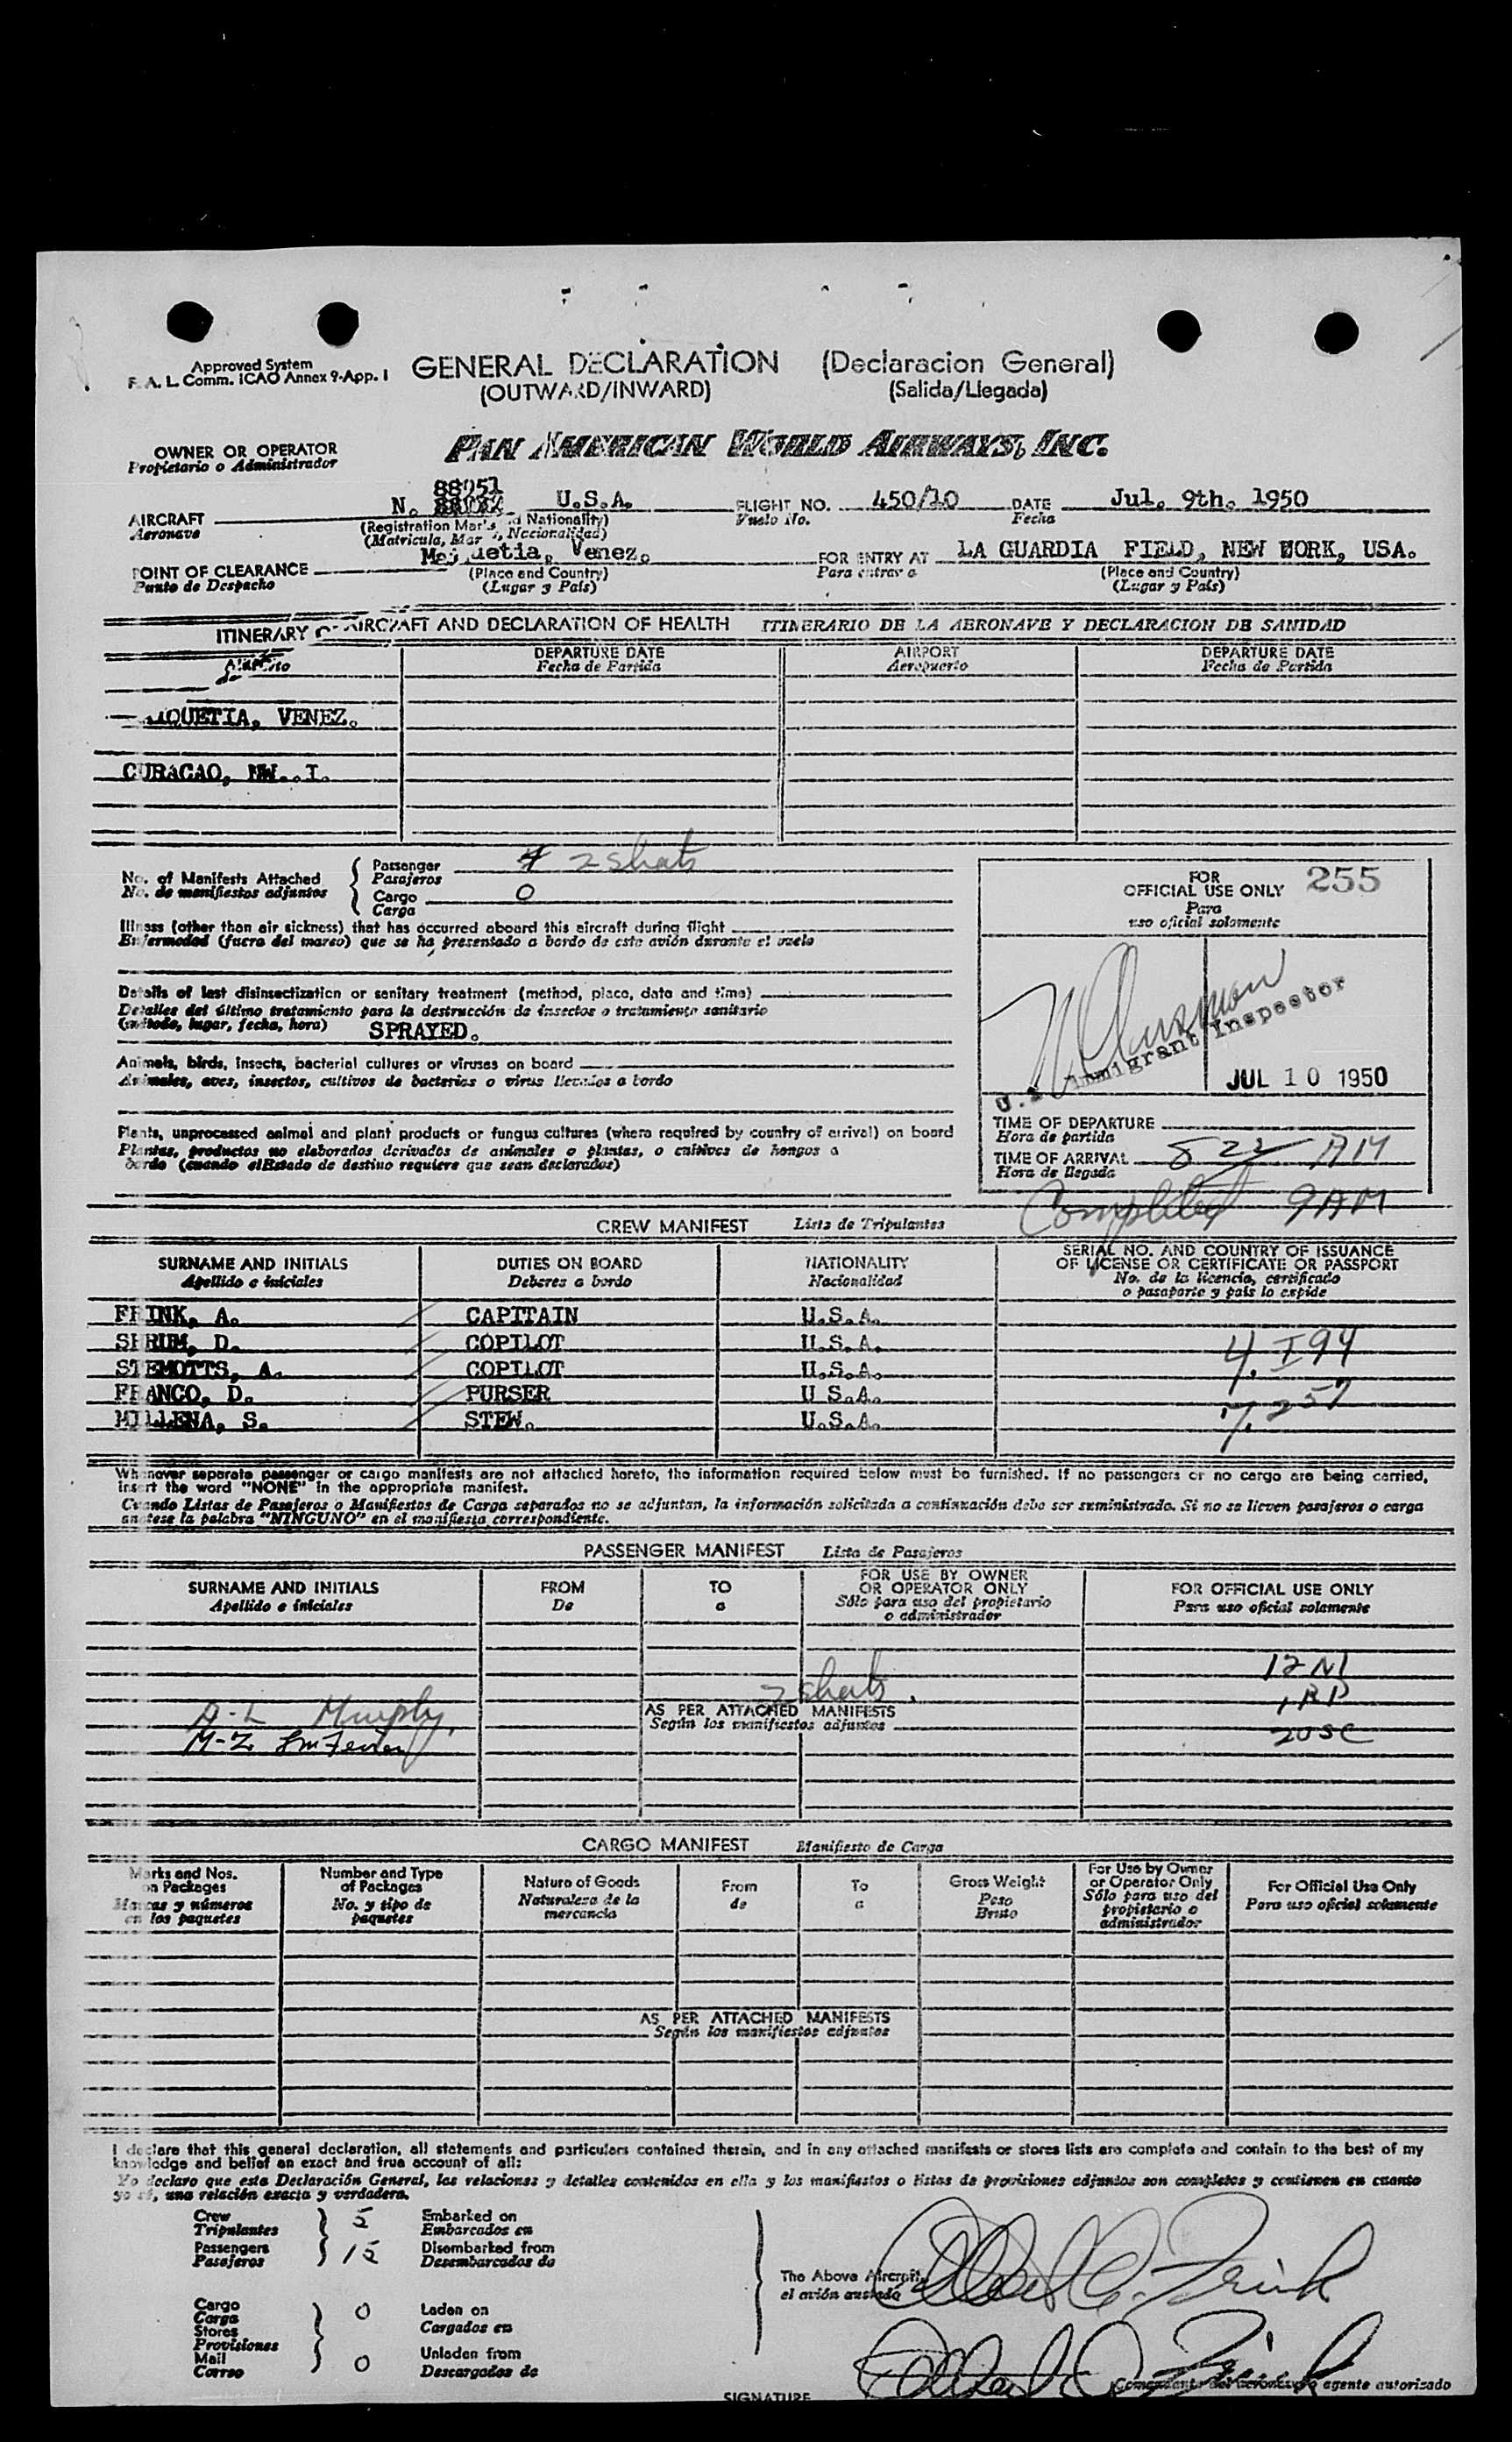 Approved System
F. A. L. Comm. ICAO Annex 9-App. I
GENERAL DECLARATION (Declaracion General)
(OUTWARD/INWARD) (Salida/Llegada)
OWNER OR OPERATOR
Propietario o Administrador
PAN AMERICAN WORLD AIRWAYS, INC.
AIRCRAFT N. 88951 U.S.A. FLIGHT NO. 450/10 DATE Jul. 9th. 1950
Aeronave (Registration Mar's d Nationality) Vuelo No. Fecha
(Matricula, Mar , Nacionalidad)
POINT OF CLEARANCE Mai uetia, Venez. FOR ENTRY AT LA GUARDIA FIELD, NEW WORK, USA.
Punto de Despacho (Place and Country) Para entrar a (Place and Country)
(Lugar y País) (Lugar y País)
ITINERARY OF AIRCRAFT AND DECLARATION OF HEALTH ITINERARIO DE LA AERONAVE Y DECLARACION DE SANIDAD
DEPARTURE DATE AIRPORT DEPARTURE DATE
Fecha de Partida Aeropuerto Fecha de Partida
IQUETIA, VENEZ.
CURACAO, NW..I.
No. of Manifests Attached
No. de manifiestos adjuntos
Passenger 4 2 sheets
Pasajeros
Cargo 0
Carga
Illness (other than air sickness) that has occurred aboard this aircraft during flight
Enfermedad (fuera del mareo) que se ha presentado a bordo de este avión durante el vuelo
Details of last disinsectization or sanitary treatment (method, place, date and time)
Detalles del último tratamiento para la destrucción de insectos o tratamiento sanitario
(método, lugar, fecha, hora) SPRAYED.
Animals, birds, insects, bacterial cultures or viruses on board
Animales, aves, insectos, cultivos de bacterias o virus llevados a bordo
Plants, unprocessed animal and plant products or fungus cultures (where required by country of arrival) on board
Plantas, productos no elaborados derivados de animales o plantas, o cultivos de hongos a
bordo (cuando el Estado de destino requiere que sean declarados)
FOR
OFFICIAL USE ONLY 255
Para
uso oficial solamente
U.S. Immigrant Inspector
JUL 10 1950
TIME OF DEPARTURE
Hora de partida
TIME OF ARRIVAL 8 22 AM
Hora de llegada
Completed 9 AM
CREW MANIFEST Lista de Tripulantes
SURNAME AND INITIALS DUTIES ON BOARD NATIONALITY SERIAL NO. AND COUNTRY OF ISSUANCE
OF LICENSE OR CERTIFICATE OR PASSPORT
Apellido e iniciales Deberes a bordo Nacionalidad No. de la licencia, certificado
o pasaporte y país lo expide
FRINK, A. CAPITAIN U.S.A.
SHRUM, D. COPILOT U.S.A. 4. I94
STEMOTTS, A. COPILOT U.S.A.
FRANCO, D. PURSER U S.A. 7. 257
MILLENA, S. STEW. U.S.A.
Whenever separate passenger or cargo manifests are not attached hereto, the information required below must be furnished. If no passengers or no cargo are being carried,
insert the word "NONE" in the appropriate manifest.
Cuando Listas de Pasajeros o Manifiestos de Carga separados no se adjuntan, la información solicitada a continuación debe ser suministrada. Si no se lleven pasajeros o carga
anótese la palabra "NINGUNO" en el manifiesto correspondiente.
PASSENGER MANIFEST Lista de Pasajeros
SURNAME AND INITIALS FROM TO FOR USE BY OWNER
OR OPERATOR ONLY FOR OFFICIAL USE ONLY
Apellido e iniciales De a Sólo para uso del propietario
o administrador Para uso oficial solamente
12 NI
2 sheets.
1 RP
A-L Murphy
AS PER ATTACHED MANIFESTS
Según los manifiestos adjuntos
M-Z
2 USC
CARGO MANIFEST Manifiesto de Carga
Marks and Nos.
on Packages
Marcas y números
en los paquetes
Number and Type
of Packages
No. y tipo de
paquetes
Nature of Goods
Naturaleza de la
mercancía
From
de
To
a
Gross Weight
Peso
Bruto
For Use by Owner
or Operator Only
Sólo para uso del
propietario o
administrador
For Official Use Only
Para uso oficial solamente
AS PER ATTACHED MANIFESTS
Según los manifiestos adjuntos
I declare that this general declaration, all statements and particulars contained therein, and in any attached manifests or stores lists are complete and contain to the best of my
knowledge and belief an exact and true account of all:
Yo declaro que esta Declaración General, las relaciones y detalles contenidos en ella y los manifiestos o listas de provisiones adjuntos son completos y contienen en cuanto
yo sé, una relación exacta y verdadera.
Crew 5 Embarked on
Tripulantes Embarcados en
Passengers 15 Disembarked from
Pasajeros Desembarcados de
The Above Aircraft
el avión
Albert C. Frink
Cargo 0 Laden on
Carga Cargados en
Stores
Provisiones
Mail 0 Unladen from
Correo Descargados de
Albert C. Frink
SIGNATURE
Comandante del aeronave o agente autorizado